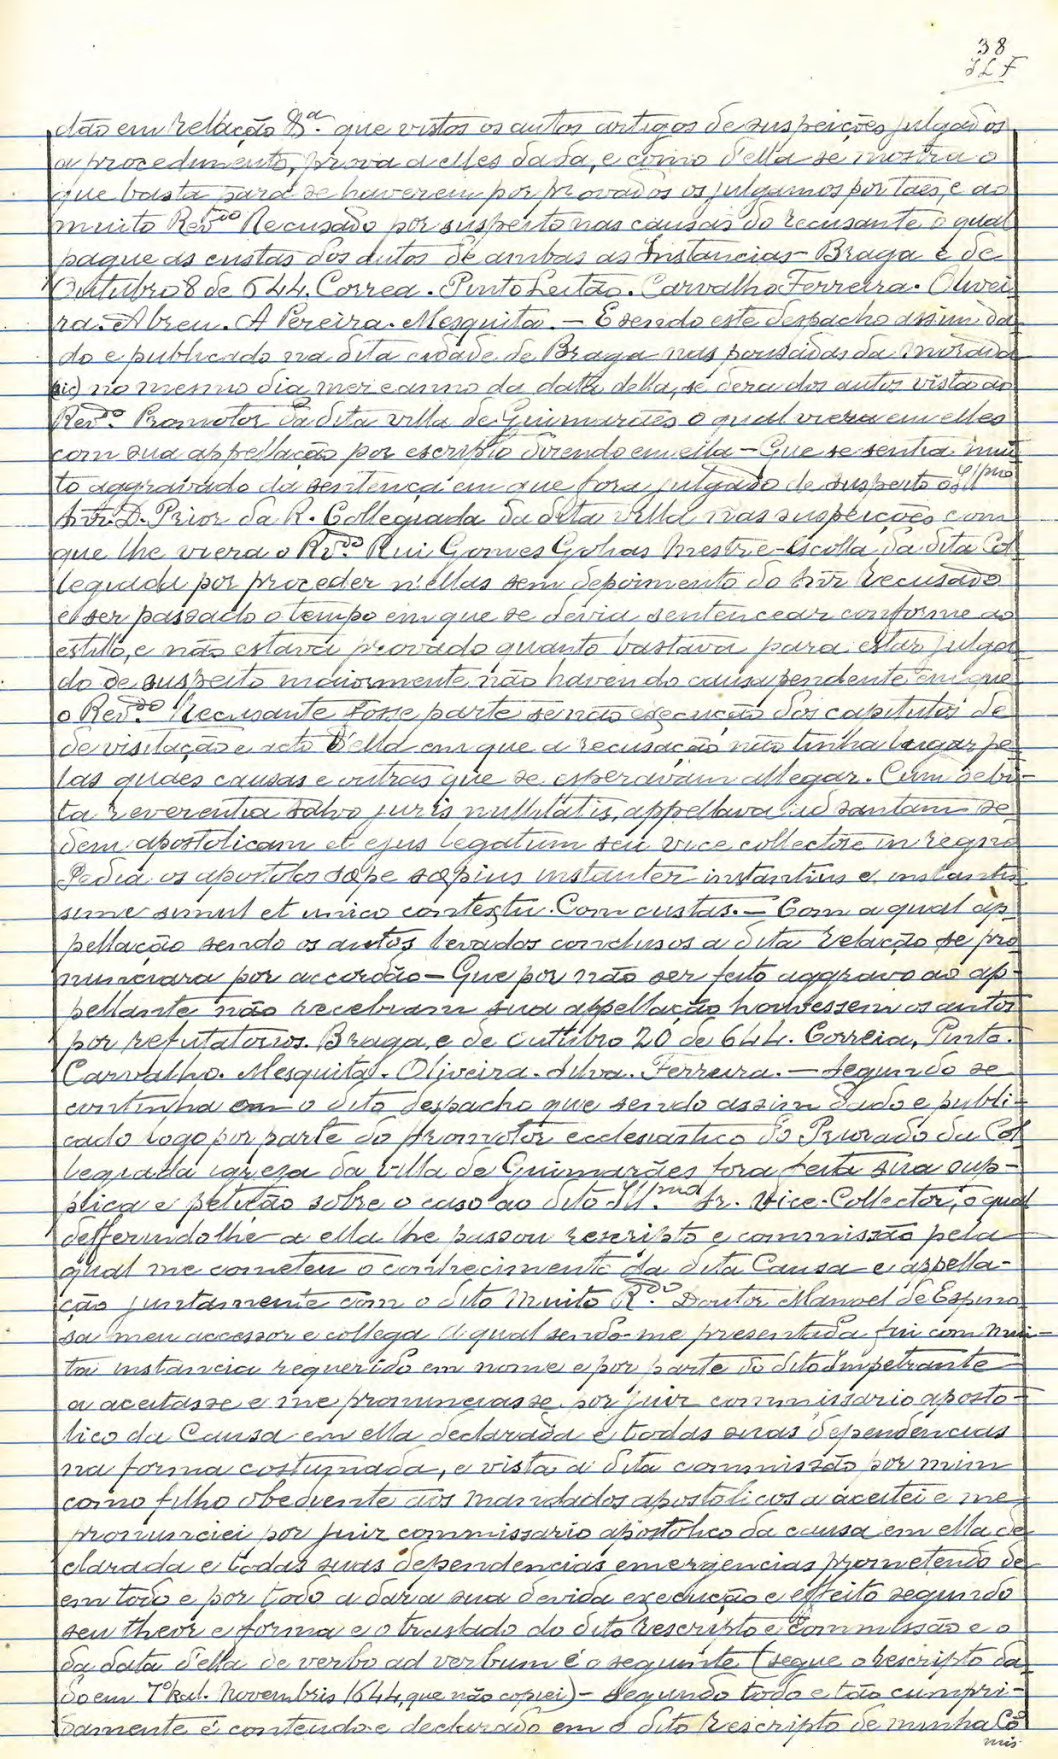 38
JLF
dão em relação &ª. que vistos os autos artigos de suspeições julgados
a procedimento, prova a elles dada, e como d'ella se mostra o
que basta para se haverem por provados os julgamos por taes, e ao
muito Revdo Recusado por suspeito nas causas do recusante o qual
pague as custas dos autos de ambas as Instancias - Braga e de
Outubro 8 de 644. Correa. Pinto Leitão. Carvalho Ferreira. Olivei
ra. Abreu. A Pereira. Mesquita. - E sendo este despacho assim da
do e publicado na dita cidade de Braga nas pousadas da morada
(sic) no mesmo dia mez e anno da data della, se dera dos autos vista ao
Revdo. Promotor da dita villa de Guimarães o qual viera em elles
com sua appellação por escripto dizendo em ella - Que se sentia mui
to aggravado da sentença em que fora julgado de suspeito o Illmo
Snr. D. Prior da R. Collegiada da dita villa nas suspeições com
que lhe viera o Rvdo. Rui Gomes Golias Mestre-Escolla da dita Col
legiada por proceder n'ellas sem depoimento do Snr Recusado
e ser passado o tempo em que se devia sentencear conforme ao
estillo, e não estava provado quanto bastava para estar julga
do de suspeito maiormente não havendo causa pendente em que
o Revdo. Recusante fosse parte senão execução dos capitulos de
de visitação e acto d'ella em que a recusação não tinha lugar pe
las quaes causas e outras que se esperavam allegar. Cum debi-
ta reverentia salvo juris nullitatis, appellava ad santam se
dem apostolicam et ejus legatum seu vice collectore in regno
Pedia os apostolos sæpe sæpius instanter instantius e instantis
sime simul et unico contextu. Com custas. - Com a qual ap
pellação sendo os autos levados conclusos a dita Relação se pro
nunciara por accordão - Que por não ser feito aggravo ao ap-
pellante não recebiam sua appellação houvessem os autos
por refutatorios. Braga, e de outubro 20 de 644. Correia, Pinto.
Carvalho. Mesquita. Oliveira. Silva. Ferreira. - Segundo se
continha em o dito despacho que sendo assim dado e publi-
cado logo por parte do promotor ecclesiastico do Priorado da Col
legiada igreja da villa de Guimarães fora feita sua sup-
plica e petição sobre o caso ao dito Illmo Sr. Vice-Collector, o qual
defferindolhe a ella lhe passou rescripto e commissão pela
qual me cometeu o conhecimento da dita Causa e appella-
ção juntamente com o dito Muito Rdo. Doutor Manoel de Espino
sa meu accessor e collega a qual sendo-me presentada fui com mui-
ta instancia requerido em nome e por parte do dito Impetrante
a aceitasse e me pronunciasse por juiz commissario aposto-
lico da Causa em ella declarada e todas suas dependencias
na forma costumada, e vista a dita commissão por mim
como filho obediente aos mandados apostolicos a aceitei e me
pronunciei por juiz commissario apostolico da causa em ella de
clarada e todas suas dependencias emergencias prometendo de
em todo e por todo a dar a sua devida execução e effeito segundo
seu theor e forma e o traslado do dito Rescripto e Commissão e o
da data d'ella de verbo ad verbum é o seguinte (segue o rescripto da
do em 7º kal. Novembris 1644, que não copiei) - Segundo todo e tão cumpri-
damente é contendo e declarado em o dito Rescripto de minha Co
mis